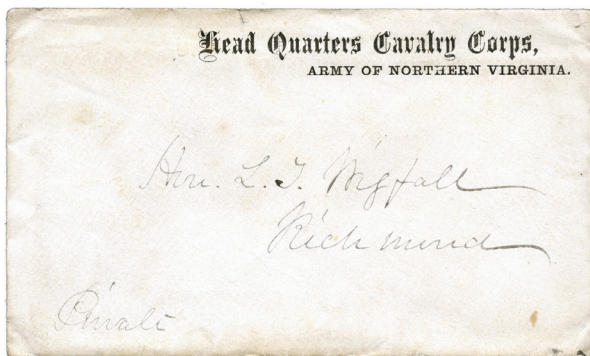 Head Quarters Cavalry Corps,
ARMY OF NORTHERN VIRGINIA.
Hon. L. T. Wigfall
Richmond
Private